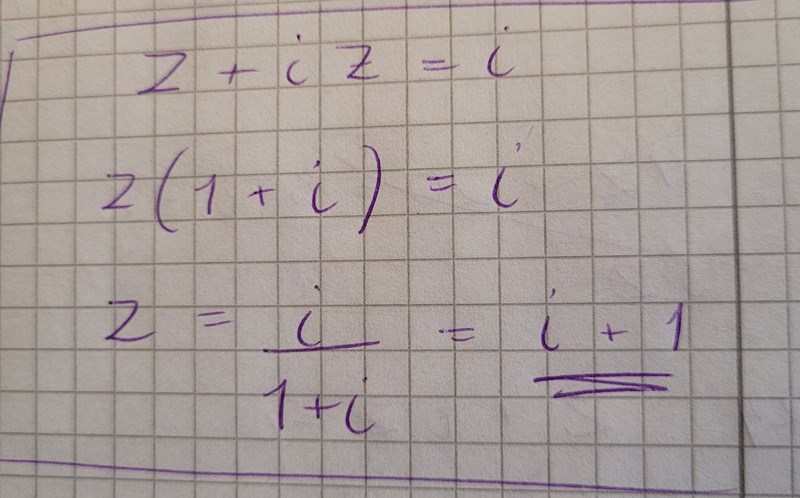 z + i z = i
z(1 + i) = i
z = i/(1+i) = i + 1